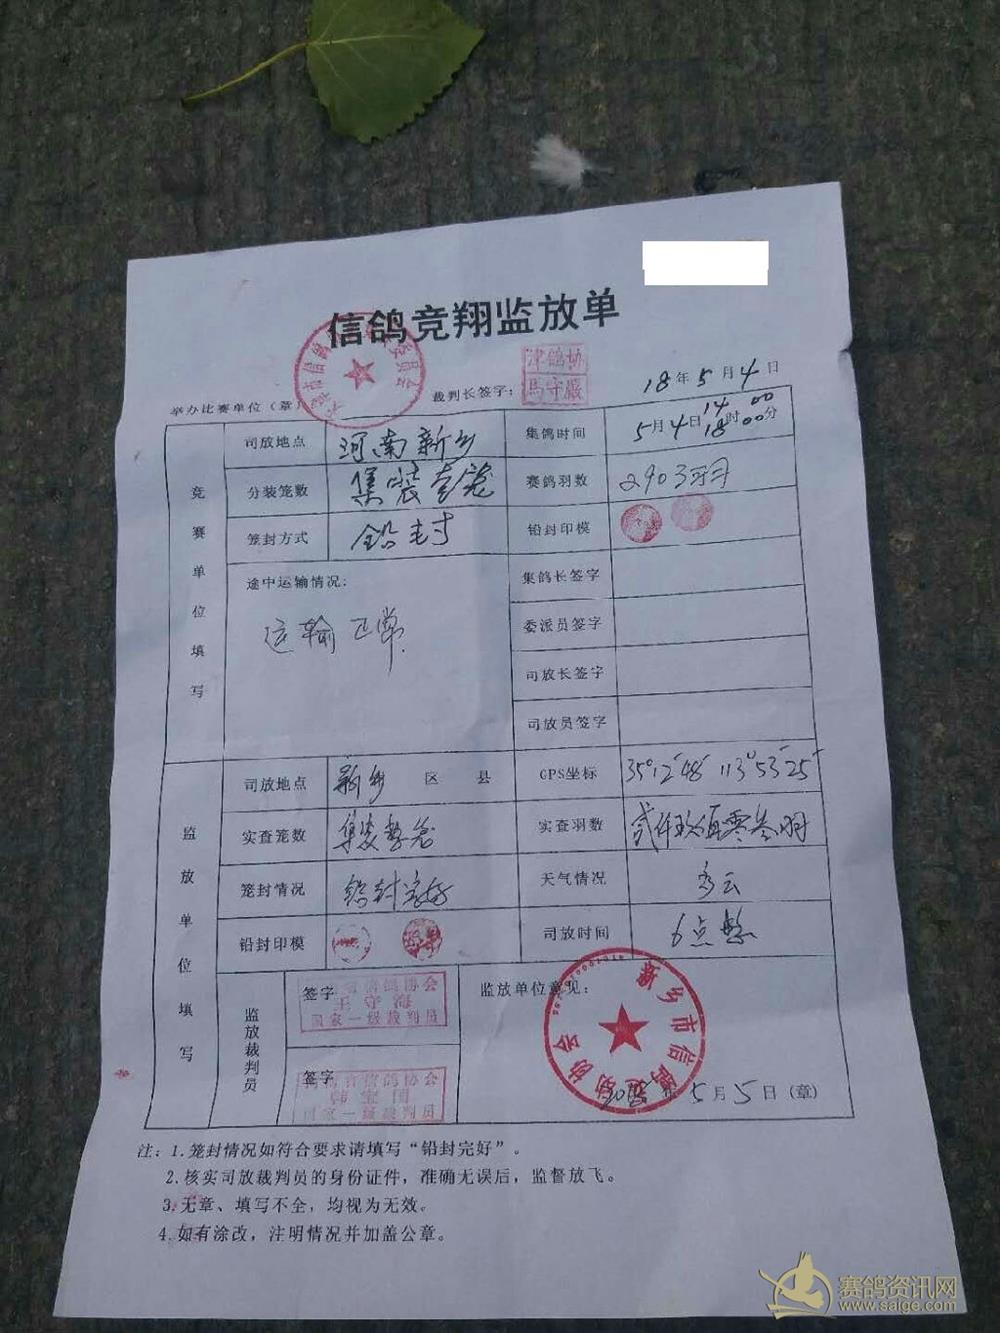 信鸽竞翔监放单
举办比赛单位（章） 裁判长签字： 津鸽协 馬守嚴 18年5月4日
竞赛单位填写
司放地点 河南新乡 集鸽时间 5月4日14时00分 18 00
分装笼数 集装套笼 赛鸽羽数 2903羽
笼封方式 铅封 铅封印模
途中运输情况： 集鸽长签字
运输正常 委派员签字
司放长签字
司放员签字
监放单位填写
司放地点 新乡 区 县 GPS坐标 35°12′48″ 113°53′25″
实查笼数 集装整笼 实查羽数 贰仟玖佰零叁羽
笼封情况 铅封完好 天气情况 多云
铅封印模 司放时间 6点整
监放裁判员
签字 信鸽协会 王守海 国家一级裁判员
签字 市信鸽协会 韩宝国 国家一级裁判员
监放单位意见：
新乡市信鸽运动协会
5月5日（章）
注：1.笼封情况如符合要求请填写“铅封完好”。
2.核实司放裁判员的身份证件，准确无误后，监督放飞。
3.无章、填写不全，均视为无效。
4.如有涂改，注明情况并加盖公章。
赛鸽资讯网
www.saige.com